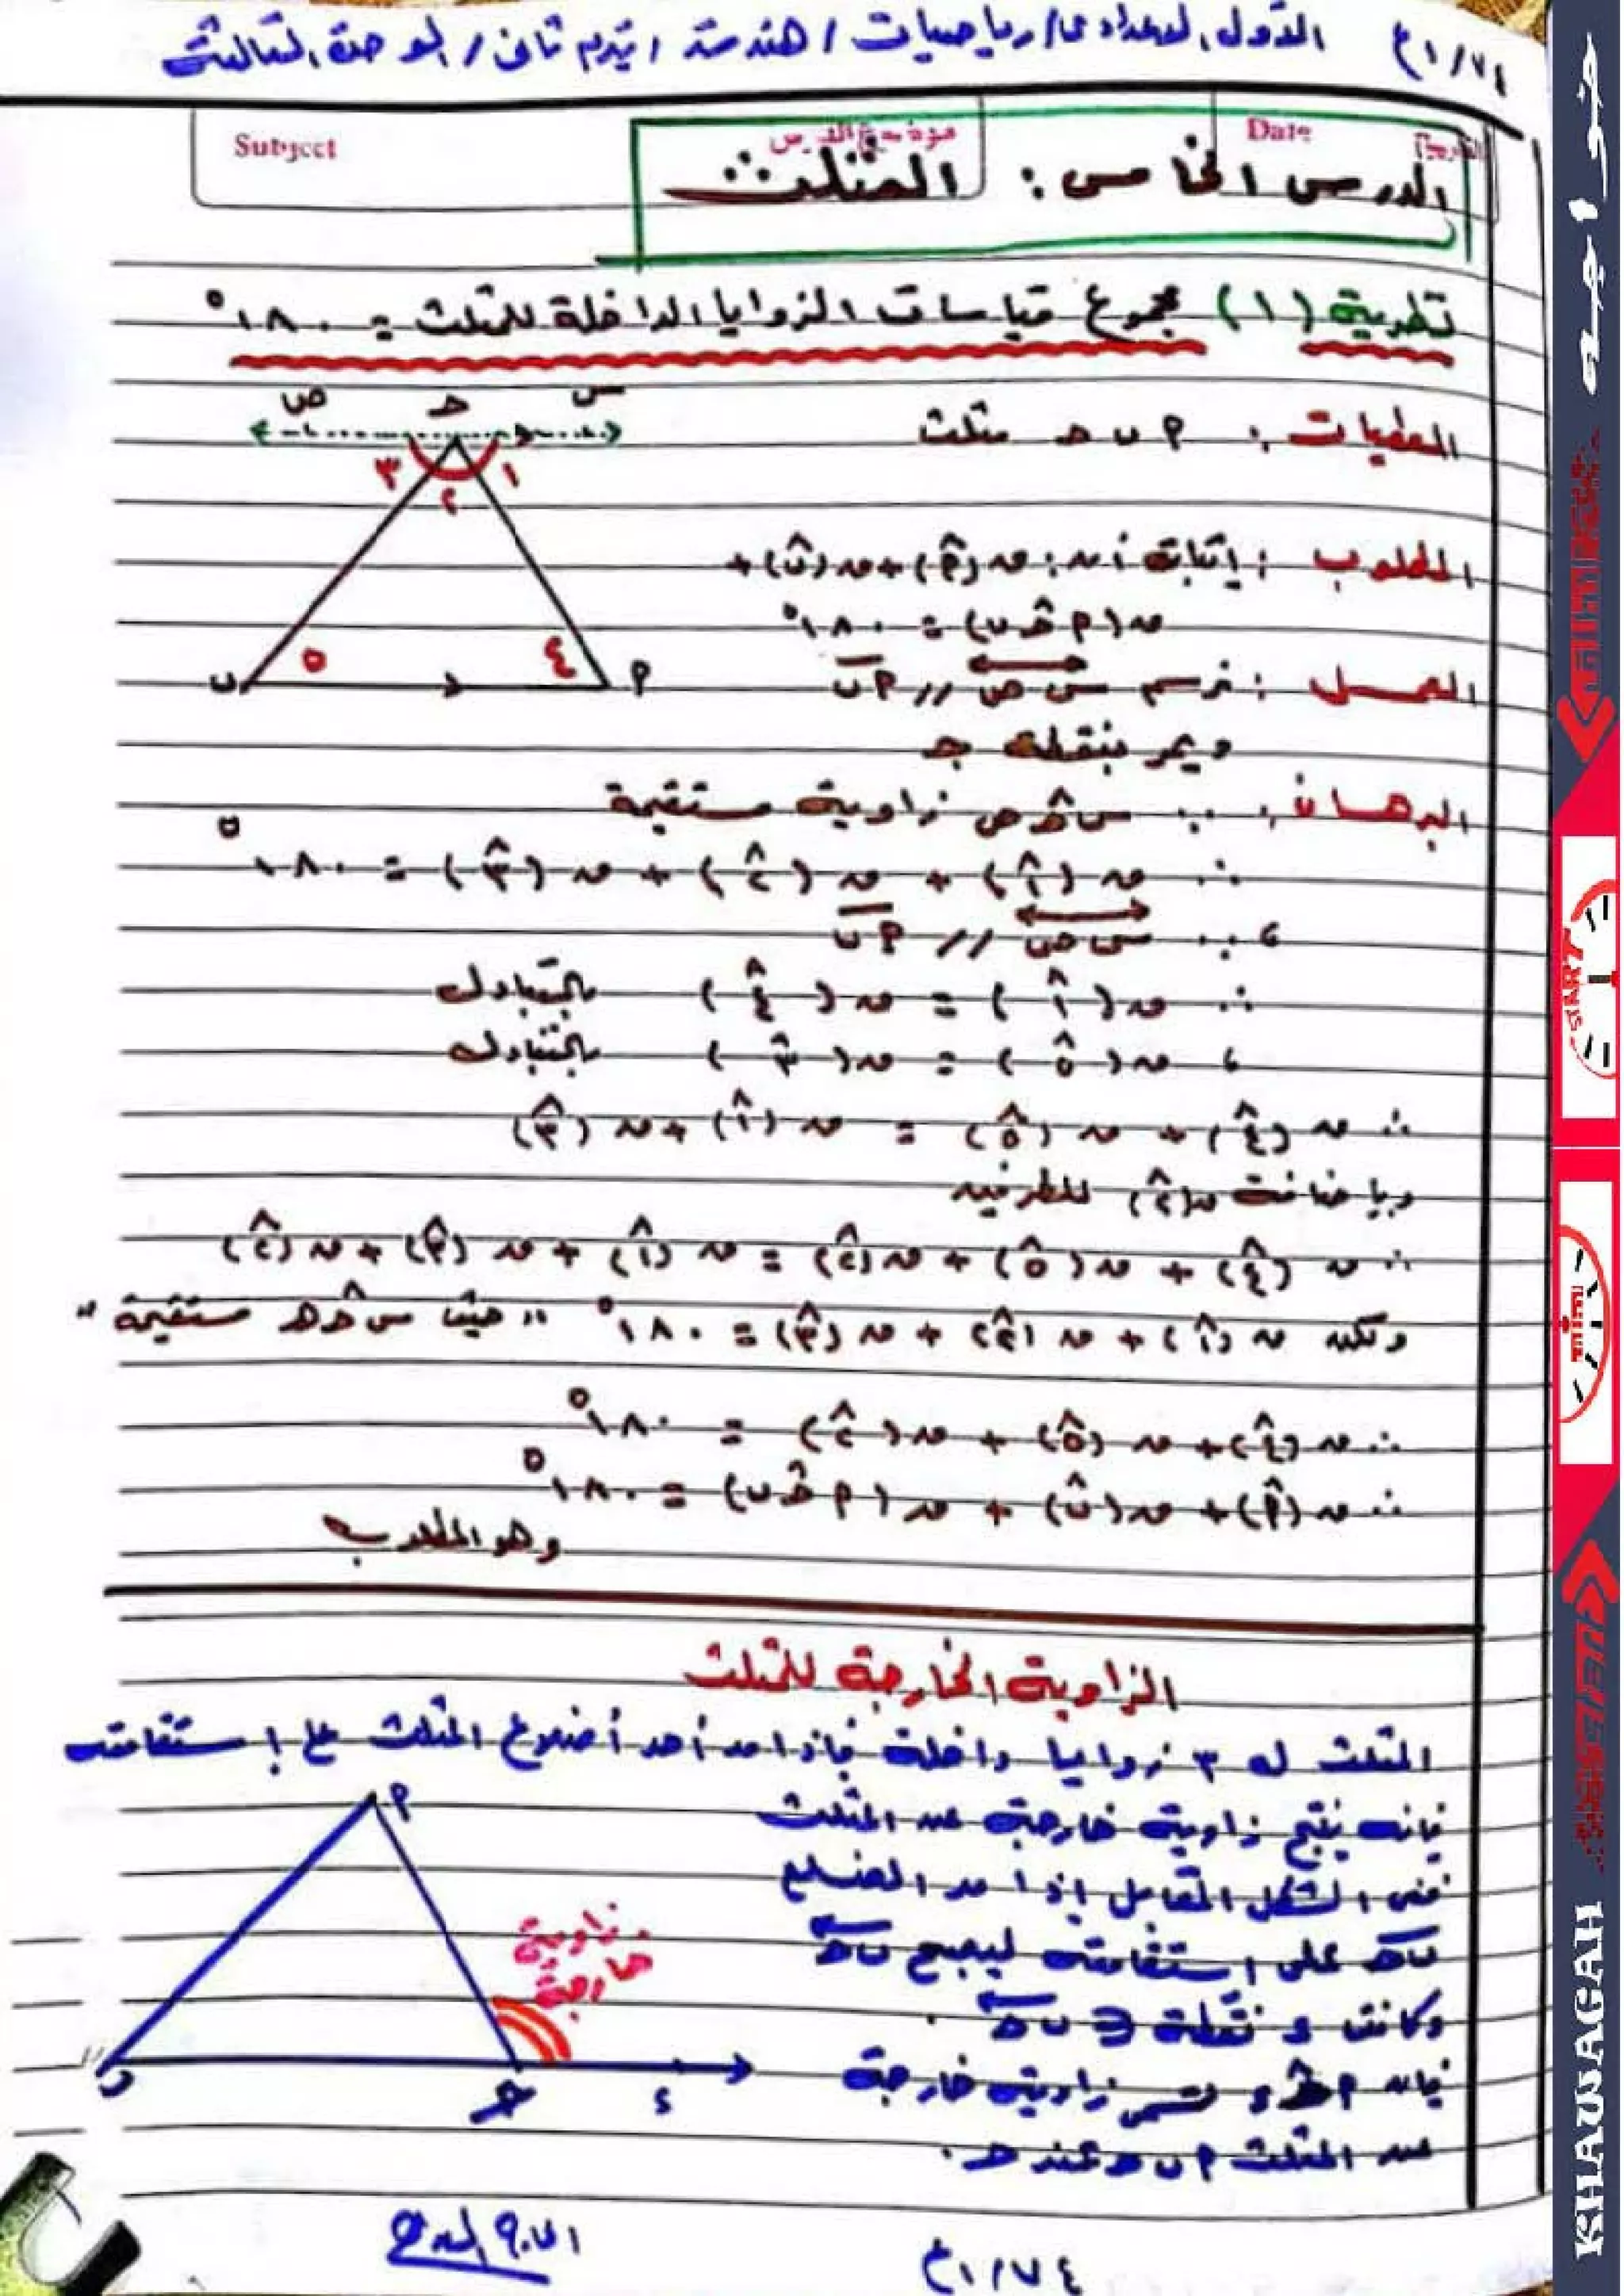 ٧٤ / ١ع الأول الاعدادى / رياضيات / هندسة / تيرم ثانى / الوحدة الثالثة
Subject موضوع الدرس Date التاريخ
الدرس الخامس : المثلث
نظرية (١) مجموع قياسات الزوايا الداخلة للمثلث = ١٨٠°
ص حـ س
المعطيات : P ب حـ مثلث
٣ ٢ ١
المطلوب : إثبات أن : ق(P̂) + ق(ب̂) +
ق(P حـ̂ ب) = ١٨٠°
ب ٥ ٤ P
العمل : نرسم س ص // P ب
ويمر بنقطة جـ
البرهان : ∵ س حـ̂ ص زاوية مستقيمة
∴ ق(١̂) + ق(٢̂) + ق(٣̂) = ١٨٠°
، ∵ س ص // P ب
∴ ق(١̂) = ق(٤̂) بالتبادل
، ق(٥̂) = ق(٣̂) بالتبادل
∴ ق(٤̂) + ق(٥̂) = ق(١̂) + ق(٣̂)
وباضافة ق(٢̂) للطرفين
∴ ق(٤̂) + ق(٥̂) + ق(٢̂) = ق(١̂) + ق(٣̂) + ق(٢̂)
ولكن ق(١̂) + ق(٢̂) + ق(٣̂) = ١٨٠° " حيث س حـ̂ ص مستقيمة "
∴ ق(٤̂) + ق(٥̂) + ق(٢̂) = ١٨٠°
∴ ق(P̂) + ق(ب̂) + ق(P حـ̂ ب) = ١٨٠°
وهو المطلوب
الزاوية الخارجة للمثلث
المثلث له ٣ زوايا داخلة فإذا مد أحد أضلاع المثلث على إستقامته
فإنه ينتج زاوية خارجة عن المثلث
ففى الشكل المقابل إذا مد الضلع
ب حـ على استقامته ليصبح ب حـ
وكانت ء نقطة ∋ ب حـ .
فإن P حـ̂ ء تسمى زاوية خارجة
عن المثلث P ب حـ عند حـ .
P
زاوية
خارجة
ب حـ ء
٧٤ / ١ع
خواجه
START
KHAWAGAH